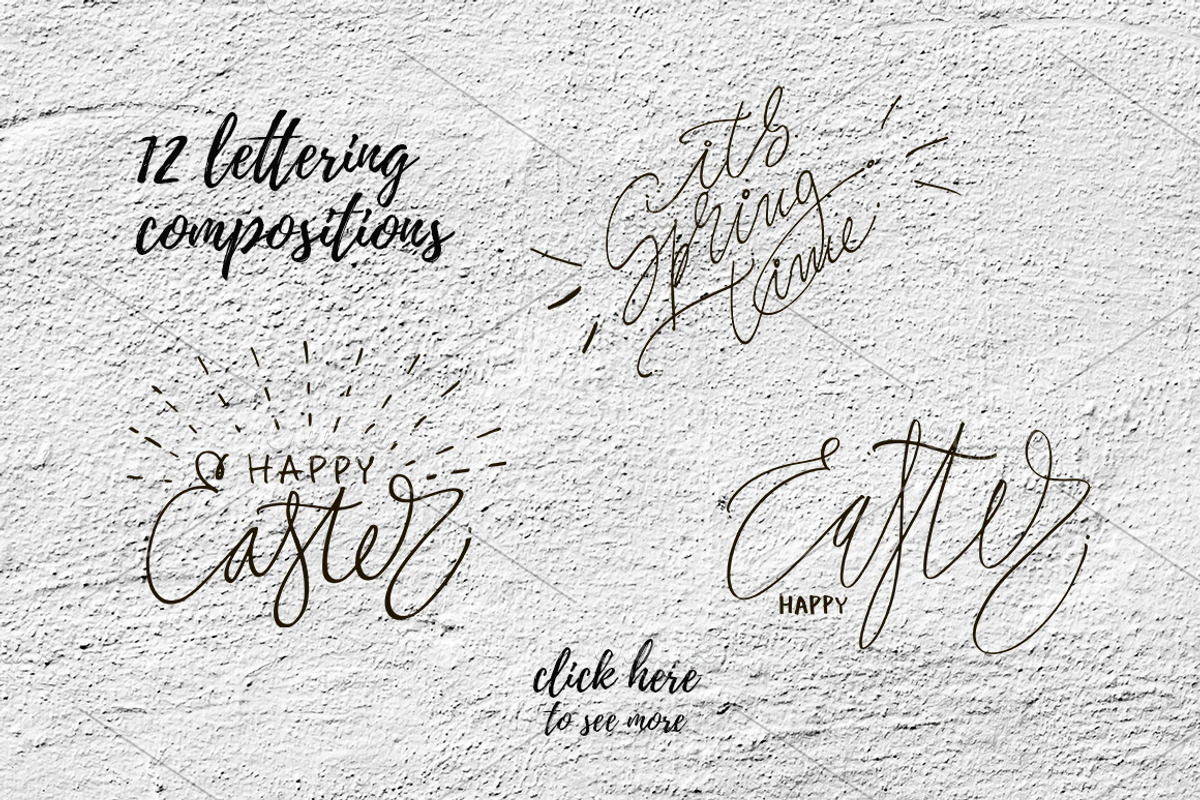 12 lettering
compositions
its
Spring
time
HAPPY
Easter
Easter
HAPPY
click here
to see more